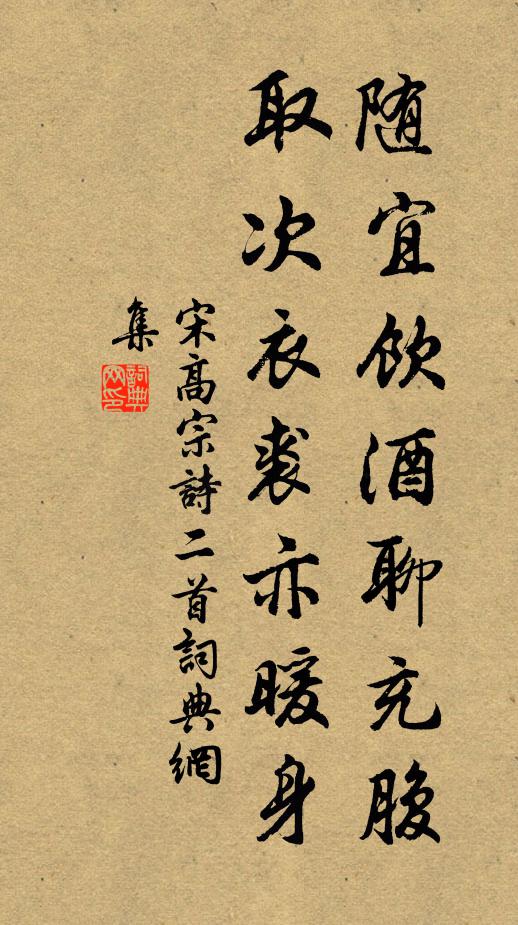 随宜飲酒聊充腹
取次衣裘亦暖身
宋高宗詩二首詞典網
集
詞典
网印